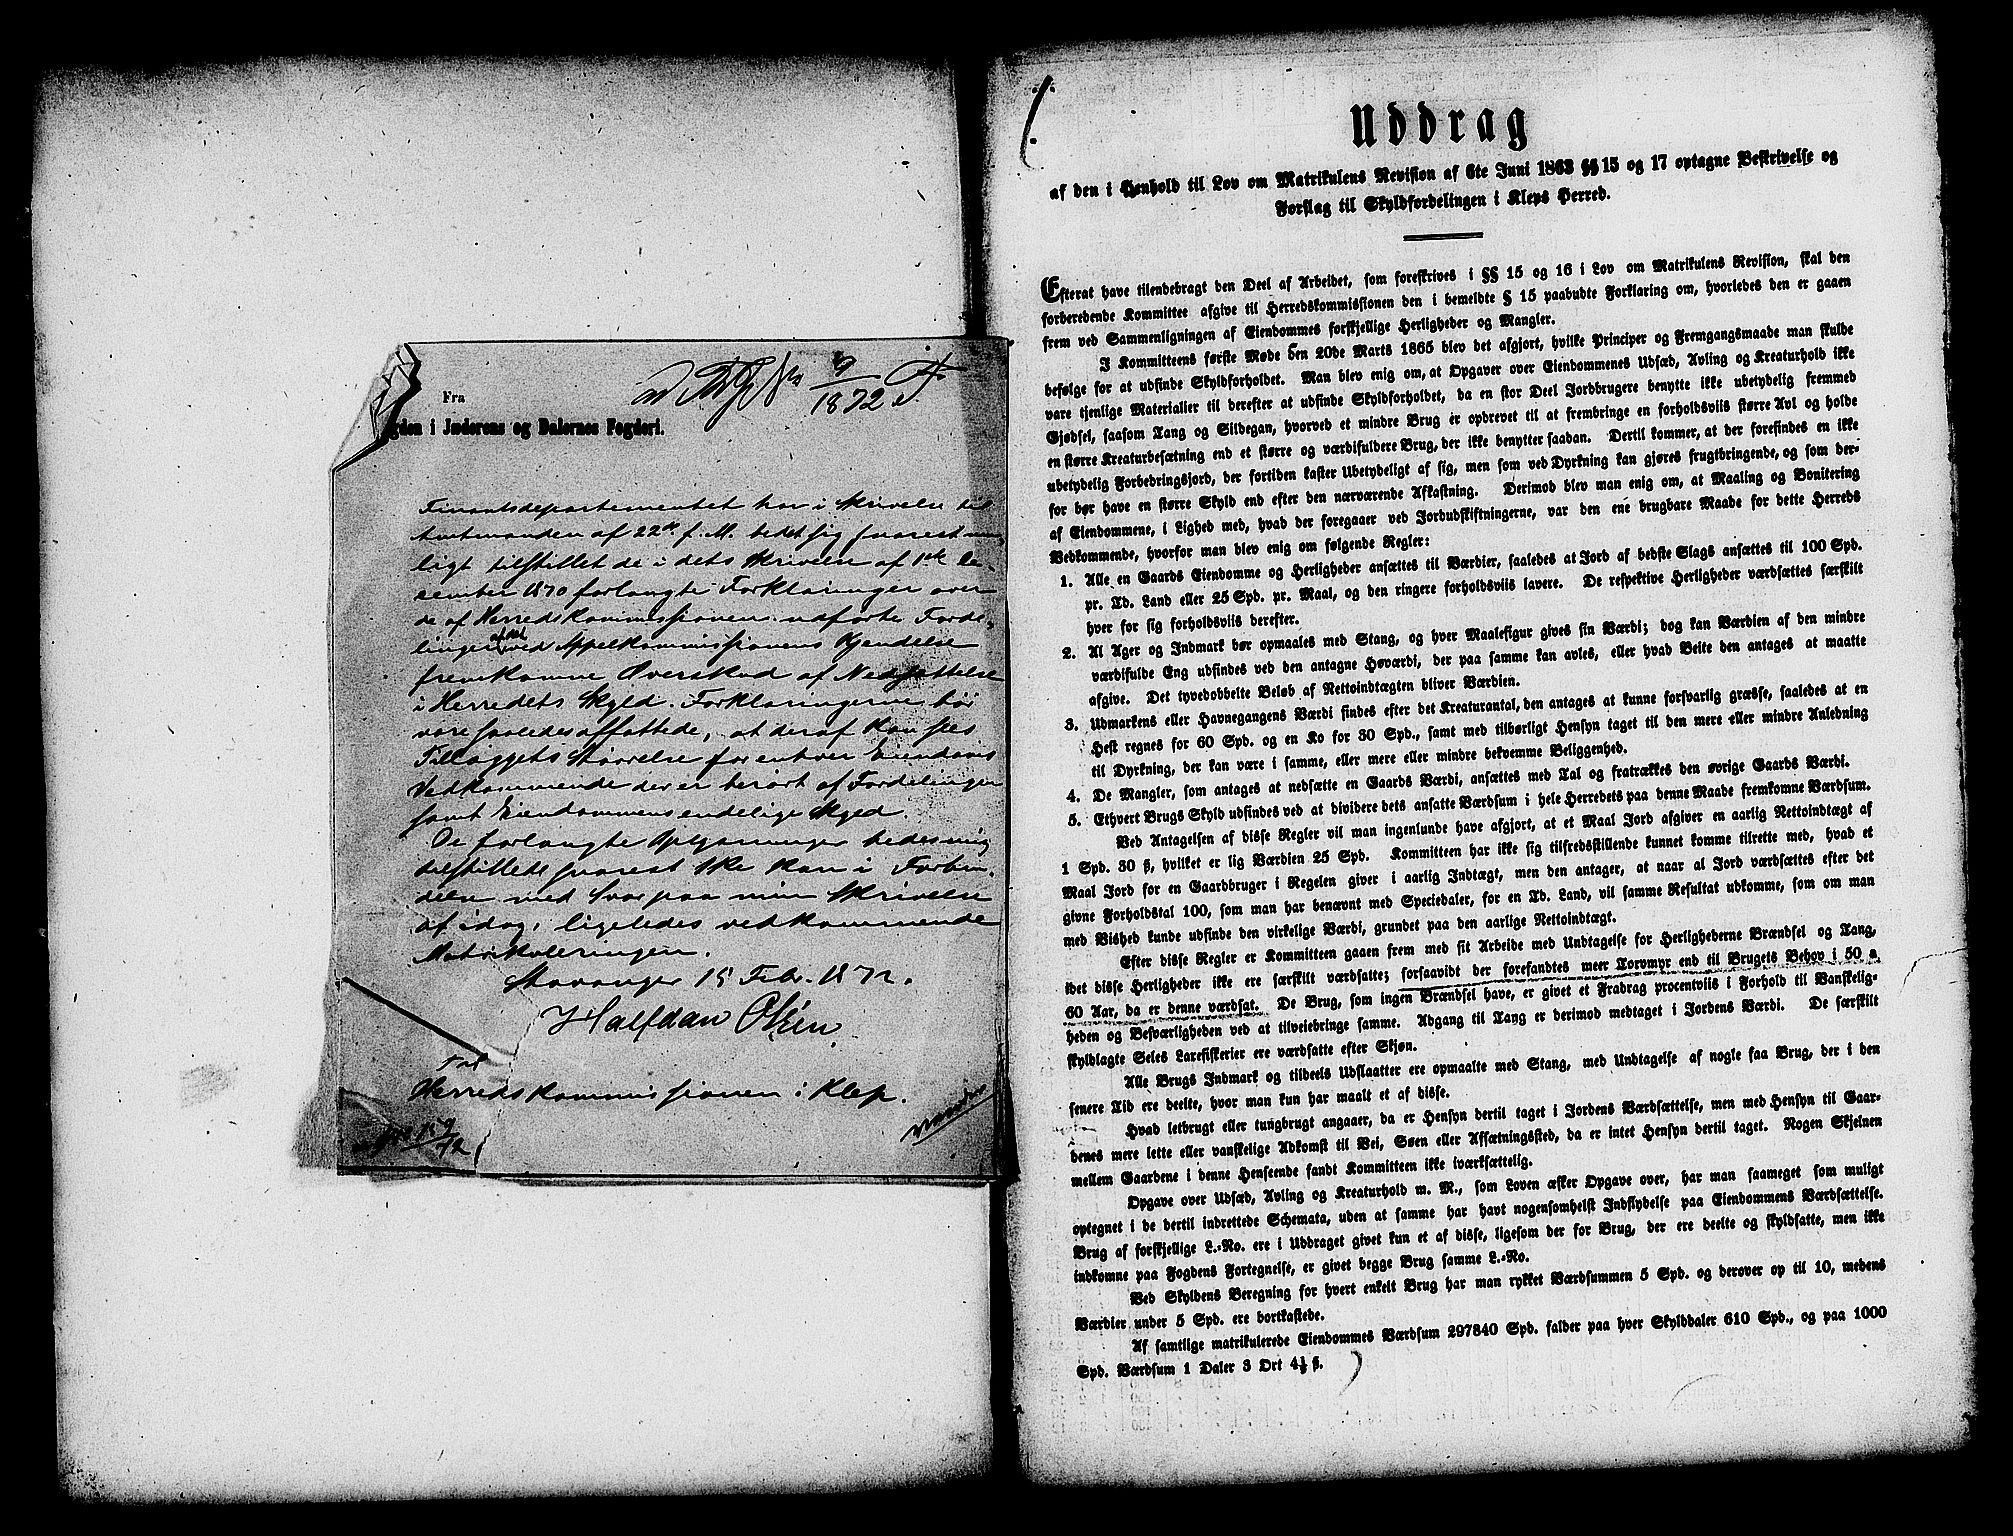 9
1872
Fra
gden i Jæderens og Dalernes Fogderi.
Finantsdepartementet har i Skrivelse til
Amtmanden af 22de f. M. bedet sig snarest mu-
ligt tilstillet de i dets Skrivelse af 1ste De-
cember 1870 forlangte Forklaringer over
de af Herredskommissionen udførte Forde-
linger af det ved Appelkommissionens Kjendelse
fremkomne Overskud af Nedsættelse
i Herredets Skyld. Forklaringerne bør
være saaledes affattede, at deraf kan sees
Tillæggets Størrelse for enhver Eiendoms
Vedkommende der er berørt af Fordelingen
samt Eiendommens endelige Skyld.
De forlangte Oplysninger bedes mig
tilstillede snarest ske kan i Forbin-
delse med Svar paa min Skrivelse
af idag, ligeledes vedkommende
Matrikuleringen.
Stavanger 15 Febr. 1872.
Halfdan Olsen
Til
Herredskommissionen i Klep.
vend
Uddrag
af den i Henhold til Lov om Matrikulens Revision af 6te Juni 1863 §§ 15 og 17 optagne Beskrivelse og
Forslag til Skyldfordelingen i Kleps Herred.
Efterat have tilendebragt den Deel af Arbeidet, som foreskrives i §§ 15 og 16 i Lov om Matrikulens Revision, skal den
forberedende Kommittee afgive til Herredskommissionen den i bemeldte § 15 paabudte Forklaring om, hvorledes den er gaaen
frem ved Sammenligningen af Eiendommes forskjellige Herligheder og Mangler.
I Kommitteens første Møde den 20de Marts 1865 blev det afgjort, hvilke Principer og Fremgangsmaade man skulde
befølge for at udfinde Skyldforholdet. Man blev enig om, at Opgaver over Eiendommenes Udsæd, Avling og Kreaturhold ikke
vare tjenlige Materialier til derefter at udfinde Skyldforholdet, da en stor Deel Jordbrugere benytte ikke ubetydelig fremmed
Gjødsel, saasom Tang og Sildegan, hvorved et mindre Brug er opdrevet til at frembringe en forholdsviis større Avl og holde
en større Kreaturbesætning end et større og værdifuldere Brug, der ikke benytter saadan. Dertil kommer, at der forefindes en ikke
ubetydelig Forbedringsjord, der fortiden kaster Ubetydeligt af sig, men som ved Dyrkning kan gjøres frugtbringende, og som der-
for bør have en større Skyld end efter den nærværende Afkastning. Derimod blev man enig om, at Maaling og Bonitering
af Eiendommene, i Lighed med, hvad der foregaaer ved Jordudskiftningerne, var den ene brugbare Maade for dette Herreds
Vedkommende, hvorfor man blev enig om følgende Regler:
1. Alle en Gaards Eiendomme og Herligheder ansættes til Værdier, saaledes at Jord af bedste Slags ansættes til 100 Spd.
pr. Td. Land eller 25 Spd. pr. Maal, og den ringere forholdsviis lavere. De respektive Herligheder værdsættes særskilt
hver for sig forholdsviis derefter.
2. Al Ager og Indmark bør opmaales med Stang, og hver Maalefigur gives sin Værdi; dog kan Værdien af den mindre
værdifulde Eng udfindes ved den antagne Høværdi, der paa samme kan avles, eller hvad Beite den antages at maatte
afgive. Det tyvedobbelte Beløb af Nettoindtægten bliver Værdien.
3. Udmarkens eller Havnegangens Værdi findes efter det Kreaturantal, den antages at kunne forsvarlig græsse, saaledes at en
Hest regnes for 60 Spd. og en Ko for 30 Spd., samt med tilbørligt Hensyn taget til den mere eller mindre Anledning
til Dyrkning, der kan være i samme, eller mere eller mindre bekvemme Beliggenhed.
4. De Mangler, som antages at nedsætte en Gaards Værdi, ansættes med Tal og fratrækkes den øvrige Gaards Værdi.
5. Ethvert Brugs Skyld udfindes ved at dividere dets ansatte Værdsum i hele Herredets paa denne Maade fremkomne Værdsum.
Ved Antagelsen af disse Regler vil man ingenlunde have afgjort, at et Maal Jord afgiver en aarlig Nettoindtægt af
1 Spd. 30 ß, hvilket er lig Værdien 25 Spd. Kommitteen har ikke sig tilfredsstillende kunnet komme tilrette med, hvad et
Maal Jord for en Gaardbruger i Regelen giver i aarlig Indtægt, men den antager, at naar al Jord værdsættes efter det
givne Forholdstal 100, som man har benævnt med Speciedaler, for en Td. Land, vil samme Resultat udkomme, som om man
med Vished kunde udfinde den virkelige Værdi, grundet paa den aarlige Nettoindtægt.
Efter disse Regler er Kommitteen gaaen frem med sit Arbeide med Undtagelse for Herlighederne Brændsel og Tang,
idet disse Herligheder ikke ere særskilt værdsatte; forsaavidt der forefandtes meer Torvmyr end til Brugets Behov i 50 a
60 Aar, da er denne værdsat. De Brug, som ingen Brændsel have, er givet et Fradrag procentviis i Forhold til Vanskelig-
heden og Besværligheden ved at tilveiebringe samme. Adgang til Tang er derimod medtaget i Jordens Værdi. De særskilt
skyldlagte Seles Laxefiskerier ere værdsatte efter Skjøn.
Alle Brugs Indmark og tildeels Udslaatter ere opmaalte med Stang, med Undtagelse af nogle faa Brug, der i den
senere Tid ere deelte, hvor man kun har maalt et af disse.
Hvad letbrugt eller tungbrugt angaaer, da er Hensyn dertil taget i Jordens Værdsættelse, men med Hensyn til Gaar-
denes mere lette eller vanskelige Adkomst til Vei, Søen eller Afsætningssted, da er intet Hensyn dertil taget. Nogen Skjelnen
mellem Gaardene i denne Henseende fandt Kommitteen ikke iværksættelig.
Opgave over Udsæd, Avling og Kreaturhold m. M., som Loven æsker Opgave over, har man saameget som muligt
optegnet i de dertil indrettede Schemata, uden at samme har havt nogensomhelst Indflydelse paa Eiendommens Værdsættelse.
Brug af forskjellige L.-No. ere i Uddraget givet kun et af disse, ligesom der for Brug, der ere deelte og skyldsatte, men ikke
indkomne paa Fogdens Fortegnelse, er givet begge Brug samme L.-No.
Ved Skyldens Beregning for hvert enkelt Brug har man rykket Værdsummen 5 Spd. og derover op til 10, medens
Værdier under 5 Spd. ere bortkastede.
Af samtlige matrikulerede Eiendommes Værdsum 297840 Spd. falder paa hver Skylddaler 610 Spd., og paa 1000
Spd. Værdsum 1 Daler 3 Ort 4½ ß.